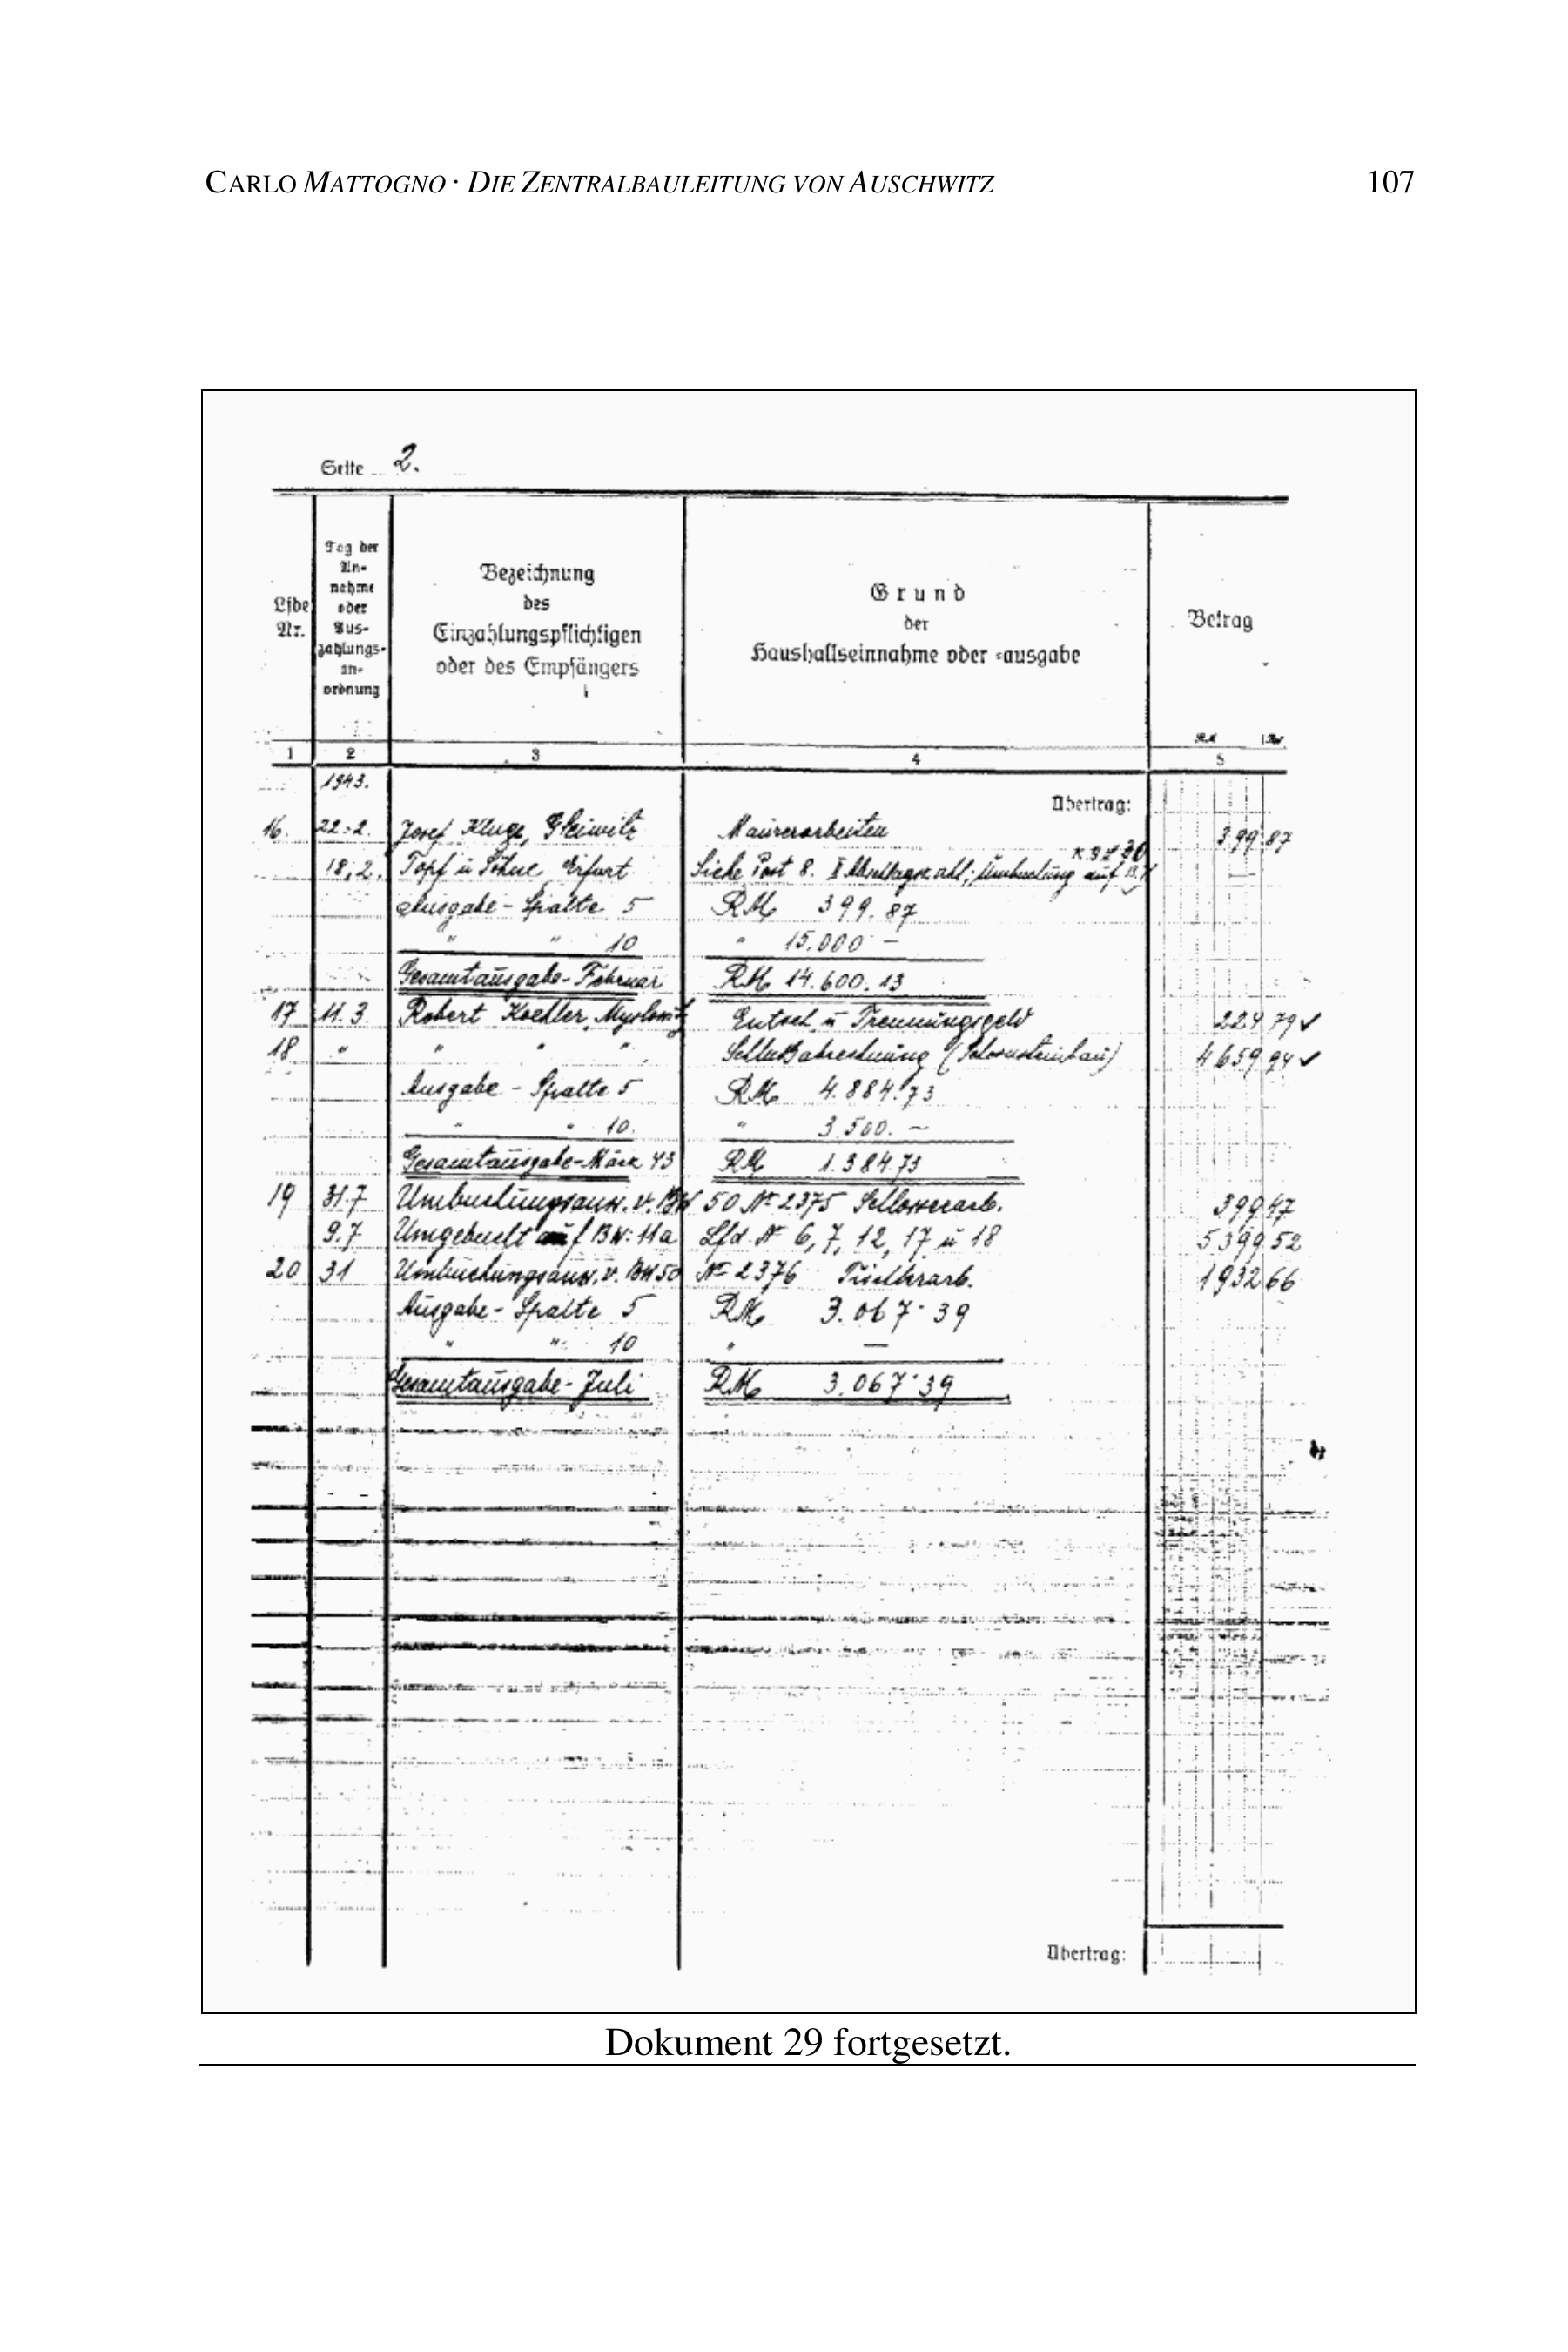 CARLO MATTOGNO · DIE ZENTRALBAULEITUNG VON AUSCHWITZ 107
Seite 2.
Lfde Nr.
Tag der An-nahme oder Aus-zahlungs-an-ordnung
Bezeichnung
des
Einzahlungspflichtigen
oder des Empfängers
Grund
der
Haushaltseinnahme oder =ausgabe
Betrag
1 2 3 4 5
1943.
Übertrag:
16. 22.2. Josef Kluge, Gleiwitz Maurerarbeiten 399 87
18.2. Topf u Söhne Erfurt Siehe Post 8. Umbuchung auf
Ausgabe - Spalte 5 RM 399.87
" " 10 " 15.000 -
Gesamtausgabe - Februar RM 14.600.13
17 11.3 Robert Koehler, Myslowitz Entsch. u Trennungsgeld 224 79 ✓
18 " " " " Schlußabrechnung (Schornsteinbau) 4659 94 ✓
Ausgabe - Spalte 5 RM 4.884.73
" " 10. " 3.500. -
Gesamtausgabe - März 43 RM 1.384.73
19 31.7 Umbuchungsanw. v. BW 50 No 2375 Schlosserarb. 399 47
9.7 Umgebucht auf BW: 11a Lfd. No 6, 7, 12, 17 u 18 5399 52
20 31 Umbuchungsanw. v. BW 50 No 2376 Tischlerarb. 1932 66
Ausgabe - Spalte 5 RM 3.067.39
" " 10 " —
Gesamtausgabe - Juli RM 3.067.39
Übertrag:
Dokument 29 fortgesetzt.